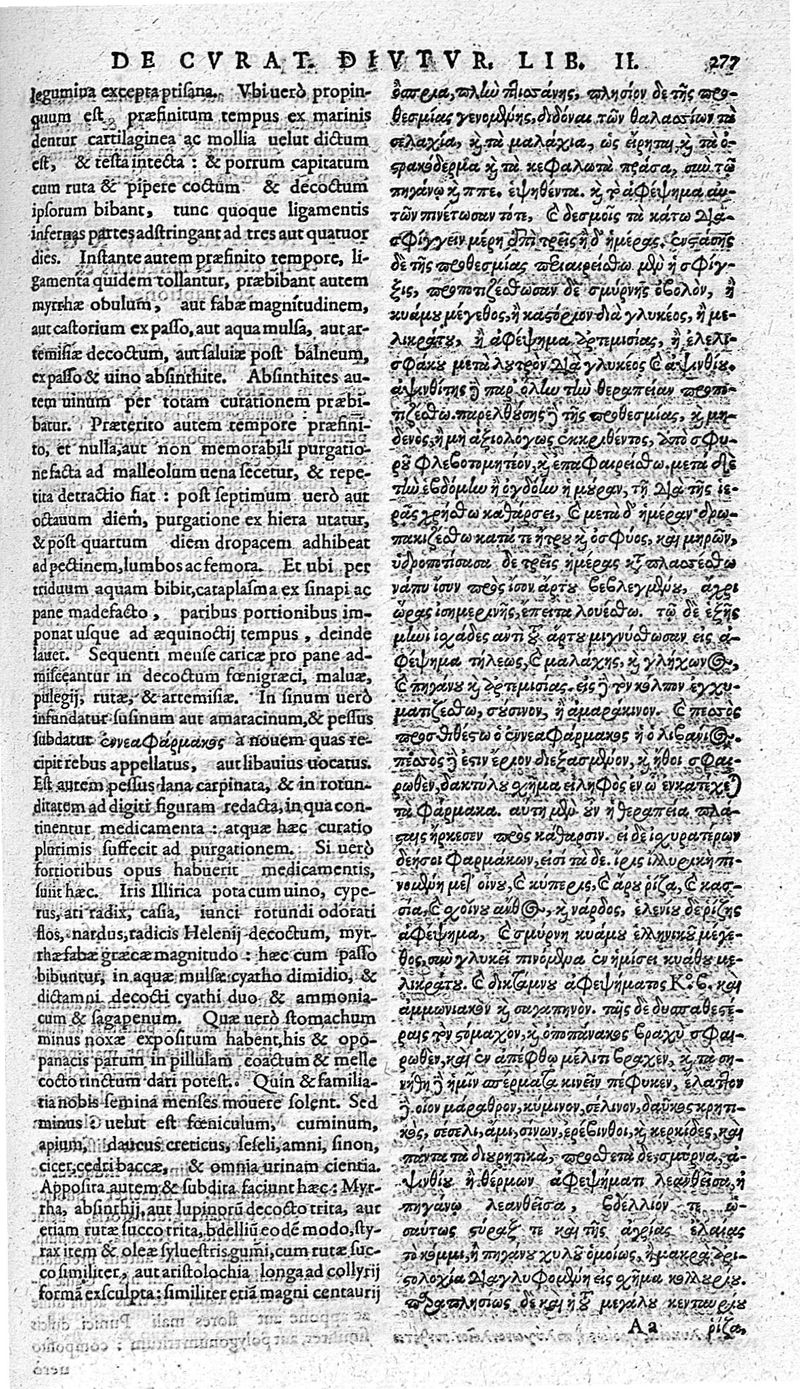 DE CVRAT. DIVTVR. LIB. II. 277
legumina excepta ptisana. Vbi uerò propin-
quum est præfinitum tempus ex marinis
dentur cartilaginea ac mollia uelut dictum
est, & testa intecta: & porrum capitatum
cum ruta & pipere coctum & decoctum
ipsorum bibant, tunc quoque ligamentis
infernas partes adstringant ad tres aut quatuor
dies. Instante autem præfinito tempore, li-
gamenta quidem tollantur, præbibant autem
myrrhæ obulum, aut fabæ magnitudinem,
aut castorium ex passo, aut aqua mulsa, aut ar-
temisiæ decoctum, aut saluiæ post balneum,
ex passo & uino absinthite. Absinthites au-
tem uinum per totam curationem præbi-
batur. Præterito autem tempore præfini-
to, et nulla, aut non memorabili purgatio-
ne facta ad malleolum uena secetur, & repe-
tita detractio fiat: post septimum uerò aut
octauum diem, purgatione ex hiera utatur,
& post quartum diem dropacem adhibeat
ad pectinem, lumbos ac femora. Et ubi per
triduum aquam bibit, cataplasma ex sinapi ac
pane madefacto, paribus portionibus im-
ponat usque ad æquinoctij tempus, deinde
lauet. Sequenti mense caricæ pro pane ad-
misceantur in decoctum fœnigræci, maluæ,
pulegij, rutæ, & artemisiæ. In sinum uerò
infundatur susinum aut amaracinum, & pessus
subdatur ἐννεαφάρμακος à nouem quas re-
cipit rebus appellatus, aut libauius uocatus.
Est autem pessus lana carpinata, & in rotun-
ditatem ad digiti figuram redacta, in qua con-
tinentur medicamenta: atquæ hæc curatio
plurimis suffecit ad purgationem. Si uerò
fortioribus opus habuerit medicamentis,
sunt hæc. Iris Illirica pota cum uino, cype-
rus, ari radix, casia, iunci rotundi odorati
flos, nardus, radicis Helenij decoctum, myr-
rhæ fabæ græcæ magnitudo: hæc cum passo
bibuntur, in aquæ mulsæ cyatho dimidio, &
dictamni decocti cyathi duo & ammonia-
cum & sagapenum. Quæ uerò stomachum
minus noxæ expositum habent, his & opo-
panacis parum in pillulam coactum & melle
cocto tinctum dari potest. Quin & familia-
ria nobis semina menses mouere solent. Sed
minus uelut est fœniculum, cuminum,
apium, daucus creticus, seseli, amni, sinon,
cicer, cedri baccæ, & omnia urinam cientia.
Apposita autem & subdita faciunt hæc: Myr-
rha, absinthij, aut lupinorũ decocto trita, aut
etiam rutæ succo trita, bdelliũ eodẽ modo, sty-
rax item & oleæ syluestris gumi, cum rutæ suc-
co similiter, aut aristolochia longa ad collyrij
formã exsculpta: similiter etiã magni centaurij
ὄσπρια, πλὴν πτισάνης, πλησίον δὲ τῆς προ-
θεσμίας γενομένης, διδόναι τῶν θαλασσίων τὰ
σελαχία, κ τὰ μαλάχια, ὡς εἴρηται κ τὰ ὀ-
στρακόδερμα κ τὰ κεφαλωτὰ πράσα, σὺν τῷ
πηγάνῳ κ πεπ. ἑψηθέντα. κ τὸ ἀφέψημα αὐ-
τῶν πινέτωσαν τότε, καὶ δεσμοῖς τὰ κάτω δια-
σφίγγειν μέρη ἐπὶ τρεῖς ἢ δ' ἡμέρας. ἐνστάσης
δὲ τῆς προθεσμίας περιαιρείσθω μὲν ἡ σφίγ-
ξις, προποτιζέσθωσαν δὲ σμύρνης ὀβολὸν, ἢ
κυάμου μέγεθος, ἢ καστόριον διὰ γλυκέος, ἢ με-
λικράτου, ἢ ἀφέψημα ἀρτεμισίας, ἢ ἐλελι-
σφάκου μετὰ λουτρὸν διὰ γλυκέος καὶ ἀψινθίου.
ἀψινθίτης δὲ παρ' ὅλην τὴν θεραπείαν προπο-
τιζέσθω. παρελθούσης δὲ τῆς προθεσμίας, κ μη-
δενος, ἢ μὴ ἀξιολόγως ἐκκριθέντος, ἀπὸ σφυ-
ροῦ φλεβοτομητέον, κ ἐπαφαιρείσθω. μετὰ δὲ
τὴν ἑβδόμην ἢ ὀγδόην ἡμέραν, τῇ διὰ τῆς ἱε-
ρᾶς χρήσθω καθάρσει, καὶ μετὰ δ' ἡμέραν δρω-
πακιζέσθω κατά τε ἤτρου κ ὀσφύος, καὶ μηρῶν,
ὑδροποτίσασα δὲ τρεῖς ἡμέρας καταπλασσέσθω
νάπυ ἴσον πρὸς ἴσον ἄρτου βεβρεγμένου, ἄχρι
ὥρας ἰσημερινῆς, ἔπειτα λουέσθω. τῷ δὲ ἑξῆς
μηνὶ ἰσχάδες ἀντὶ τοῦ ἄρτου μιγνύσθωσαν εἰς ἀ-
φέψημα τήλεως, καὶ μαλάχης, κ γλήχωνος,
καὶ πηγάνου κ ἀρτεμισίας. εἰς δὲ τὸν κόλπον ἐγχυ-
ματιζέσθω, σούσινον, ἢ ἀμαράκινον. καὶ πεσσὸς
προστιθέσθω ὁ ἐννεαφάρμακος ἢ ὁ λιβανιος.
πεσσὸς δὲ ἐστιν ἔριον διεξασμένον, κ ἤθοι σφαι-
ρωθὲν, δακτύλου σχῆμα εἰληφὸς ἐν ᾧ ἐνκατεχεται
τὰ φάρμακα. αὕτη μὲν οὖν ἡ θεραπεία πλεί-
σταις ἤρκεσεν πρὸς κάθαρσιν. εἰ δὲ ἰσχυρατέρων
δεήσοι φαρμάκων, εἰσὶ τὰ δε. ἶρις ἰλλυρικὴ πι-
νομένη μετ' οἴνου, καὶ κύπερις, καὶ ἄρου ῥίζα, καὶ κασ-
σία, καὶ σχοίνου ἄνθος, κ νάρδος, ἑλενίου δὲ ῥίζης
ἀφέψημα, καὶ σμύρνη κυάμου ἑλληνικοῦ μέγε-
θος, σὺν γλυκεῖ πινόμενα ἐν ἡμίσει κυάθου με-
λικράτου. καὶ δικτάμνου ἀφεψήματος Κο. β. καὶ
ἀμμωνιακὸν κ σαγαπηνὸν. ταῖς δὲ δυσπαθεστέ-
ραις τὸν στόμαχον, κ ὀποπάνακος βραχὺ σφαι-
ρωθὲν, καὶ ἐν ἀπέφθῳ μέλιτι βραχὲν, κ τὰ συ-
νήθη δὲ ἡμῖν σπέρματα κινεῖν πέφυκεν, ἔλαττον
δὲ οἷον μάραθρον, κύμινον, σέλινον, δαῦκος κρητι-
κὸς, σέσελι, ἄμι, σίνων, ἐρέβινθοι, κ κερκίδες, καὶ
πάντα τὰ διουρητικὰ, προσθετὰ δὲ, σμύρνα, ἀ-
ψινθίου ἢ θέρμων ἀφεψήματι λεανθεῖσα, ἢ
πηγάνῳ λεανθεῖσα, βδέλλιόν τε ὡ-
σαύτως στύραξ τε καὶ τῆς ἀγρίας ἐλαίας
τὸ κόμμι, ἢ πηγάνου χυλοῦ ὁμοίως, ἢ μακρὰ ἀρι-
στολοχία διαγλυφομένη εἰς σχῆμα κολλυρίου.
παραπλησίως δὲ καὶ ἡ τοῦ μεγάλου κενταυρίου
Aa ῥίζα,